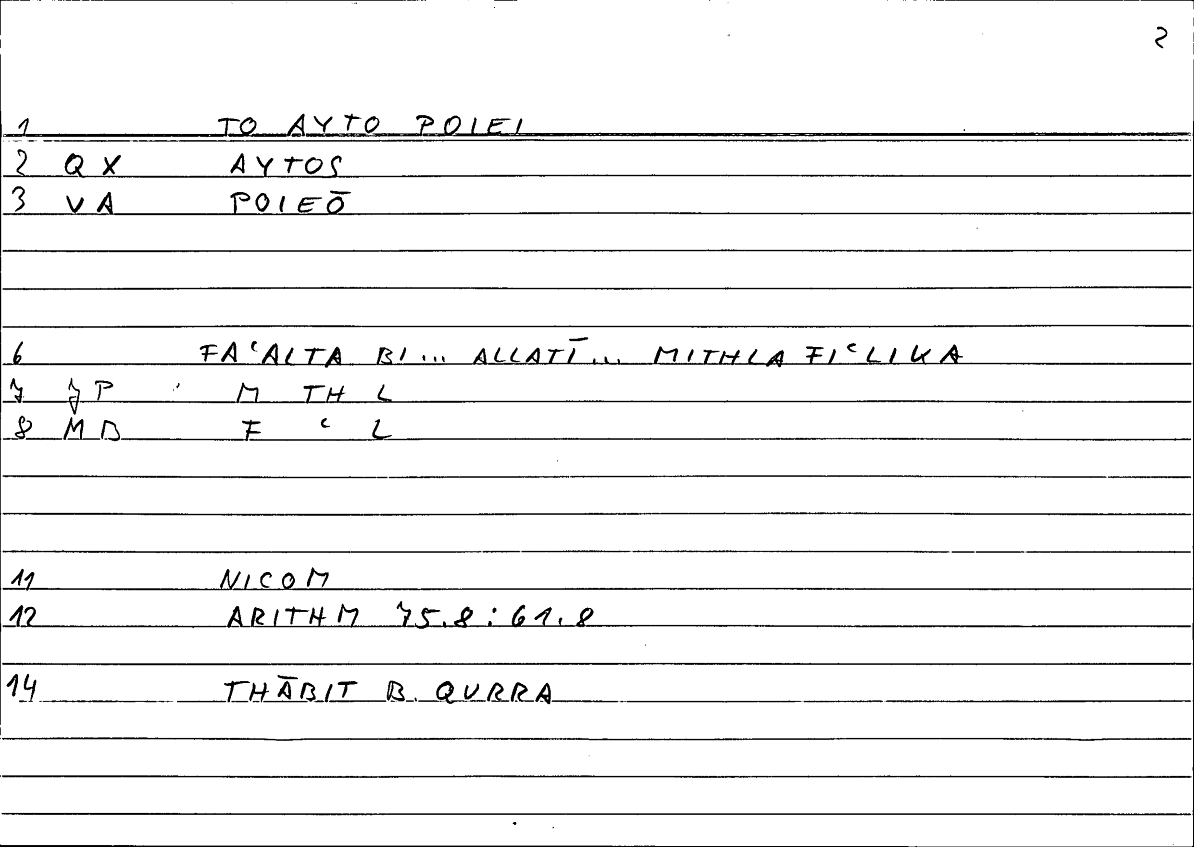 2
1 TO AYTO POIEI
2 QX AYTOS
3 VA POIEŌ
6 FAʿALTA BI... ALLATĪ... MITHLA FIʿLIKA
7 JP M TH L
8 MB F ʿ L
11 NICOM
12 ARITHM 75.8:61.8
14 THĀBIT B. QURRA